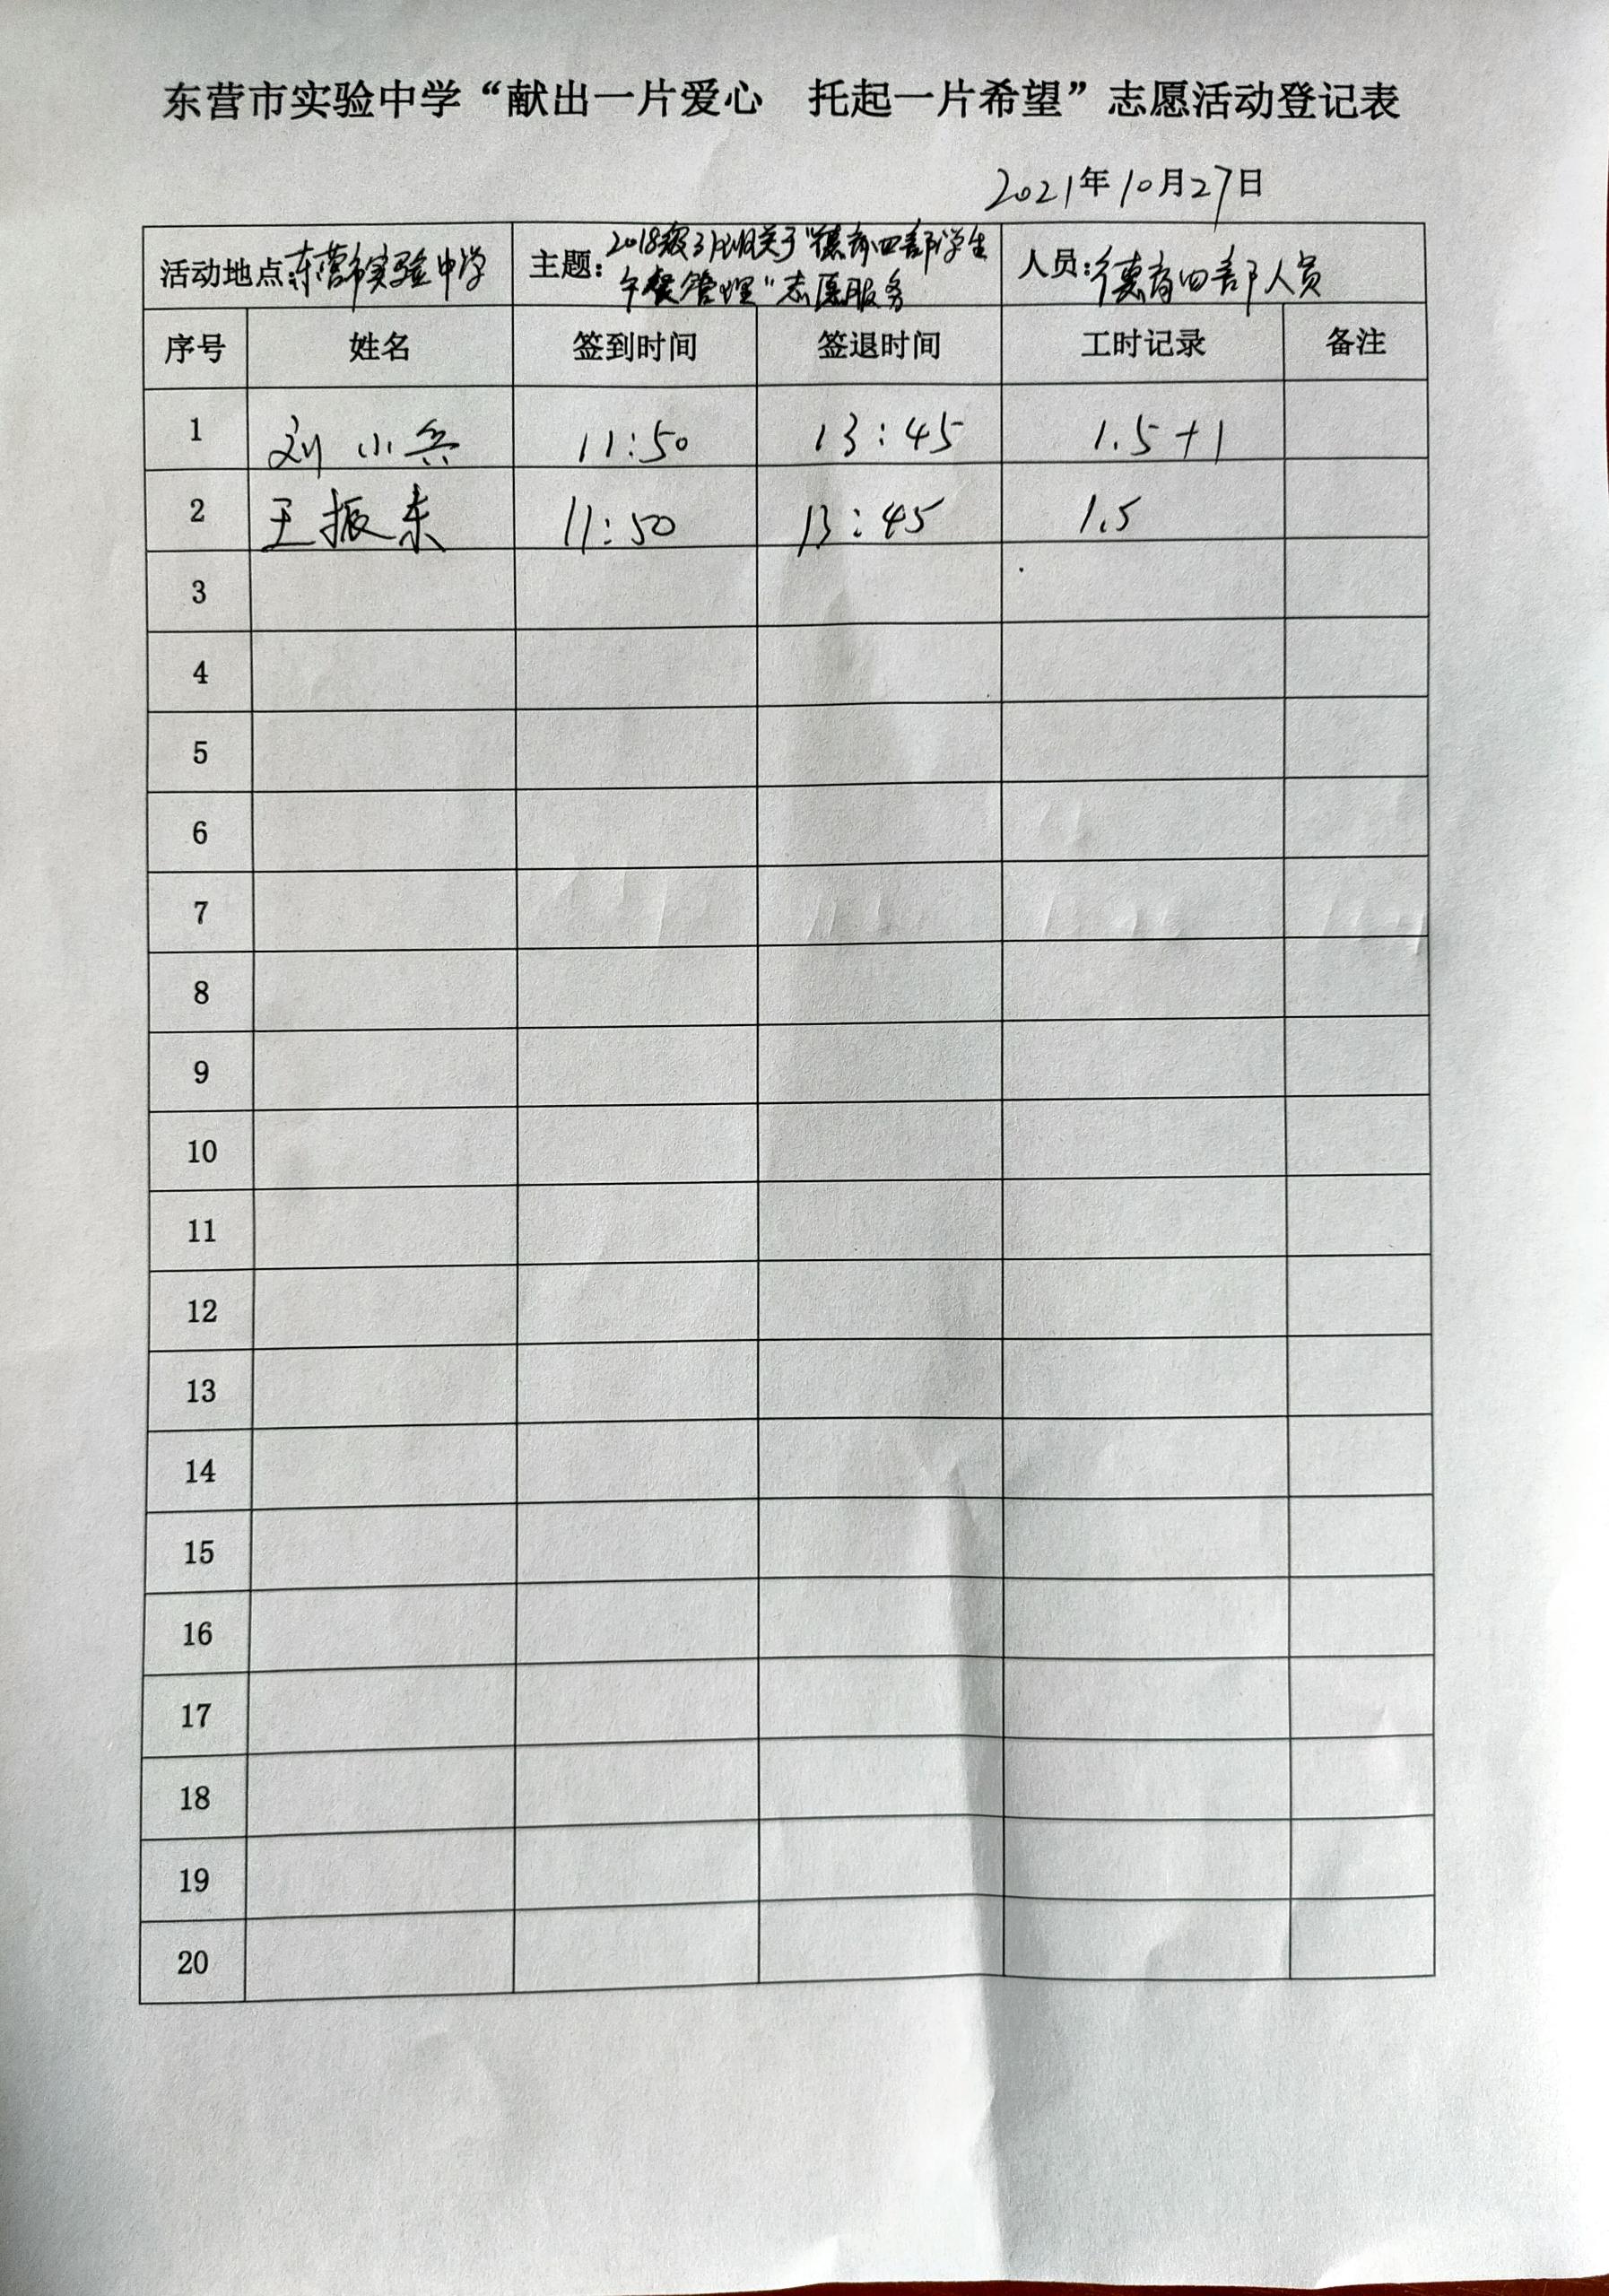 东营市实验中学“献出一片爱心 托起一片希望”志愿活动登记表
2021年10月27日
活动地点:东营市实验中学 主题: 2018级31班关于“德育四部学生 人员:德育四部人员
午餐管理”志愿服务
序号 姓名 签到时间 签退时间 工时记录 备注
1 刘小兵 11:50 13:45 1.5+1
2 王振东 11:50 13:45 1.5
3
4
5
6
7
8
9
10
11
12
13
14
15
16
17
18
19
20